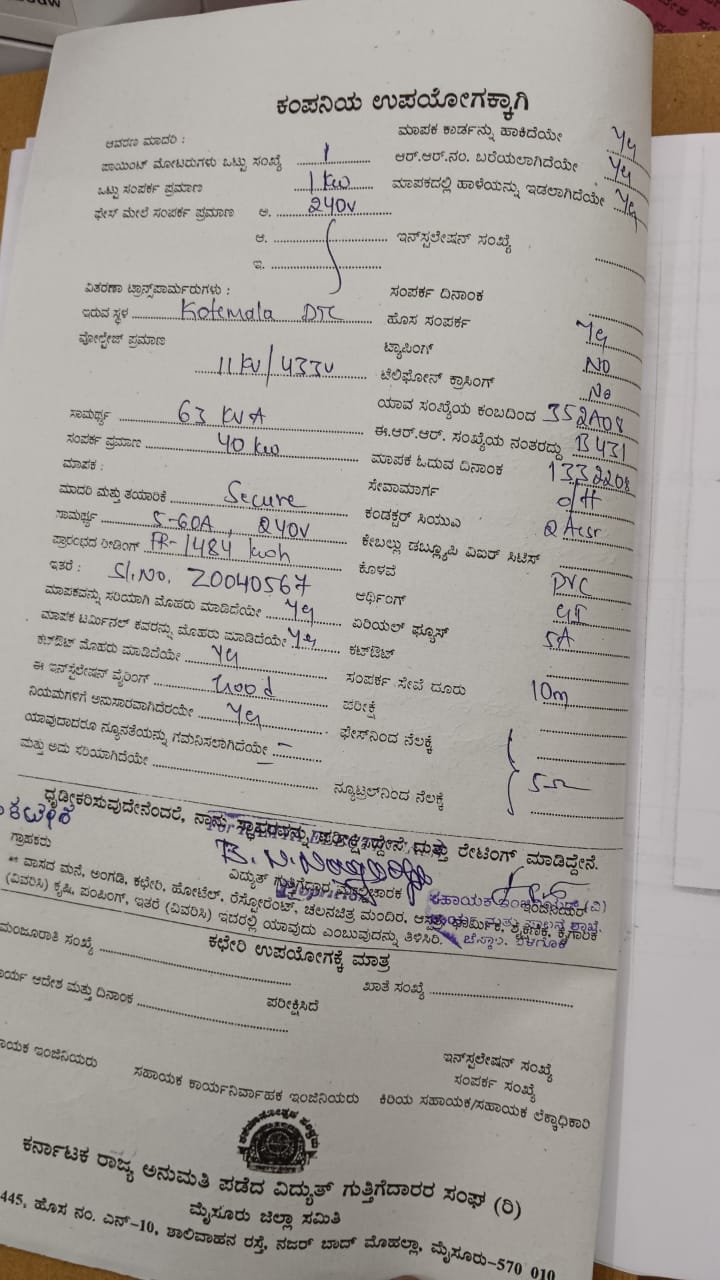 ಕಂಪನಿಯ ಉಪಯೋಗಕ್ಕಾಗಿ
ಆವರಣ ಮಾದರಿ : ಮಾಪಕ ಕಾರ್ಡನ್ನು ಹಾಕಿದೆಯೇ Yes
ಪಾಯಿಂಟ್ ಮೋಟರುಗಳು ಒಟ್ಟು ಸಂಖ್ಯೆ 1 ಆರ್.ಆರ್.ನಂ. ಬರೆಯಲಾಗಿದೆಯೇ Yes
ಒಟ್ಟು ಸಂಪರ್ಕ ಪ್ರಮಾಣ 1 Kw ಮಾಪಕದಲ್ಲಿ ಹಾಳೆಯನ್ನು ಇಡಲಾಗಿದೆಯೇ Yes
ಫೇಸ್ ಮೇಲೆ ಸಂಪರ್ಕ ಪ್ರಮಾಣ ಅ. 240V
ಆ. ಇನ್‌ಸ್ಟಲೇಷನ್ ಸಂಖ್ಯೆ
ಇ.
ವಿತರಣಾ ಟ್ರಾನ್ಸ್‌ಪಾರ್ಮರುಗಳು : ಸಂಪರ್ಕ ದಿನಾಂಕ
ಇರುವ ಸ್ಥಳ Kotemala DTC ಹೊಸ ಸಂಪರ್ಕ Yes
ವೋಲ್ಟೇಜ್ ಪ್ರಮಾಣ 11 KV/433V ಟ್ಯಾಪಿಂಗ್ NO
ಟೆಲಿಫೋನ್ ಕ್ರಾಸಿಂಗ್ No
ಯಾವ ಸಂಖ್ಯೆಯ ಕಂಬದಿಂದ 352A08
ಸಾಮರ್ಥ್ಯ 63 KVA ಈ.ಆರ್.ಆರ್. ಸಂಖ್ಯೆಯ ನಂತರದ್ದು B431
ಸಂಪರ್ಕ ಪ್ರಮಾಣ 40 Kw ಮಾಪಕ ಓದುವ ದಿನಾಂಕ 1332208
ಮಾಪಕ : ಸೇವಾಮಾರ್ಗ o/H
ಮಾದರಿ ಮತ್ತು ತಯಾರಿಕೆ Secure ಕಂಡಕ್ಟರ್ ಸಿಯುಎ 2 Acsr
ಸಾಮರ್ಥ್ಯ 5-60A, 240V ಕೇಬಲ್ಲು ಡಬ್ಲ್ಯೂಪಿ ವಿಐರ್ ಸಿಟಿಸ್
ಪ್ರಾರಂಭದ ರೀಡಿಂಗ್ FR-1484 kwh ಕೊಳವೆ PVC
ಇತರೆ : Sl.No. Z0040567 ಅರ್ಥಿಂಗ್ GI
ಮಾಪಕವನ್ನು ಸರಿಯಾಗಿ ಮೊಹರು ಮಾಡಿದೆಯೇ Yes ಏರಿಯಲ್ ಫ್ಯೂಸ್ 5A
ಮಾಪಕ ಟರ್ಮಿನಲ್ ಕವರನ್ನು ಮೊಹರು ಮಾಡಿದೆಯೇ Yes ಕಟ್‌ಔಟ್
ಕಟ್‌ಔಟ್ ಮೊಹರು ಮಾಡಿದೆಯೇ Yes ಸಂಪರ್ಕ ಸೇವೆ ದೂರು 10m
ಈ ಇನ್‌ಸ್ಟಲೇಷನ್ ವೈರಿಂಗ್ Good ಪರೀಕ್ಷೆ
ನಿಯಮಗಳಿಗೆ ಅನುಸಾರವಾಗಿದೆರಯೇ Yes ಫೇಸ್‌ನಿಂದ ನೆಲಕ್ಕೆ
ಯಾವುದಾದರೂ ನ್ಯೂನತೆಯನ್ನು ಗಮನಿಸಲಾಗಿದೆಯೇ – 5Ω
ಮತ್ತು ಅದು ಸರಿಯಾಗಿದೆಯೇ ನ್ಯೂಟ್ರಲ್‌ನಿಂದ ನೆಲಕ್ಕೆ
ಧೃಡೀಕರಿಸುವುದೇನೆಂದರೆ, ನಾನು ಸ್ಥಾವರವನ್ನು ಪರೀಕ್ಷಿಸಿದ್ದೇನೆ ಮತ್ತು ರೇಟಿಂಗ್ ಮಾಡಿದ್ದೇನೆ.
ಗ್ರಾಹಕರು ವಿದ್ಯುತ್ ಗುತ್ತಿಗೆದಾರ/ಮೇಲ್ವಿಚಾರಕ ಸಹಾಯಕ ಇಂಜಿನಿಯರ್ (ವಿ)
** ವಾಸದ ಮನೆ, ಅಂಗಡಿ, ಕಛೇರಿ, ಹೋಟೆಲ್, ರೆಸ್ಟೋರೆಂಟ್, ಚಲನಚಿತ್ರ ಮಂದಿರ, ಆಸ್ಪತ್ರೆ, ಧಾರ್ಮಿಕ, ಶೈಕ್ಷಣಿಕ, ಕೈಗಾರಿಕೆ
(ವಿವರಿಸಿ) ಕೃಷಿ, ಪಂಪಿಂಗ್, ಇತರೆ (ವಿವರಿಸಿ) ಇದರಲ್ಲಿ ಯಾವುದು ಎಂಬುವುದನ್ನು ತಿಳಿಸಿರಿ.
ಕಛೇರಿ ಉಪಯೋಗಕ್ಕೆ ಮಾತ್ರ
ಮಂಜೂರಾತಿ ಸಂಖ್ಯೆ ಖಾತೆ ಸಂಖ್ಯೆ
ರ್ಯ ಆದೇಶ ಮತ್ತು ದಿನಾಂಕ ಪರೀಕ್ಷಿಸಿದೆ
ಇನ್‌ಸ್ಟಲೇಷನ್ ಸಂಖ್ಯೆ
ಸಂಪರ್ಕ ಸಂಖ್ಯೆ
ಾಯಕ ಇಂಜಿನಿಯರು ಸಹಾಯಕ ಕಾರ್ಯನಿರ್ವಾಹಕ ಇಂಜಿನಿಯರು ಕಿರಿಯ ಸಹಾಯಕ/ಸಹಾಯಕ ಲೆಕ್ಕಾಧಿಕಾರಿ
ಕರ್ನಾಟಕ ರಾಜ್ಯ ಅನುಮತಿ ಪಡೆದ ವಿದ್ಯುತ್ ಗುತ್ತಿಗೆದಾರರ ಸಂಘ (ರಿ)
ಮೈಸೂರು ಜಿಲ್ಲಾ ಸಮಿತಿ
445, ಹೊಸ ನಂ. ಎನ್-10, ಶಾಲಿವಾಹನ ರಸ್ತೆ, ನಜರ್ ಬಾದ್ ಮೊಹಲ್ಲಾ, ಮೈಸೂರು-570 010